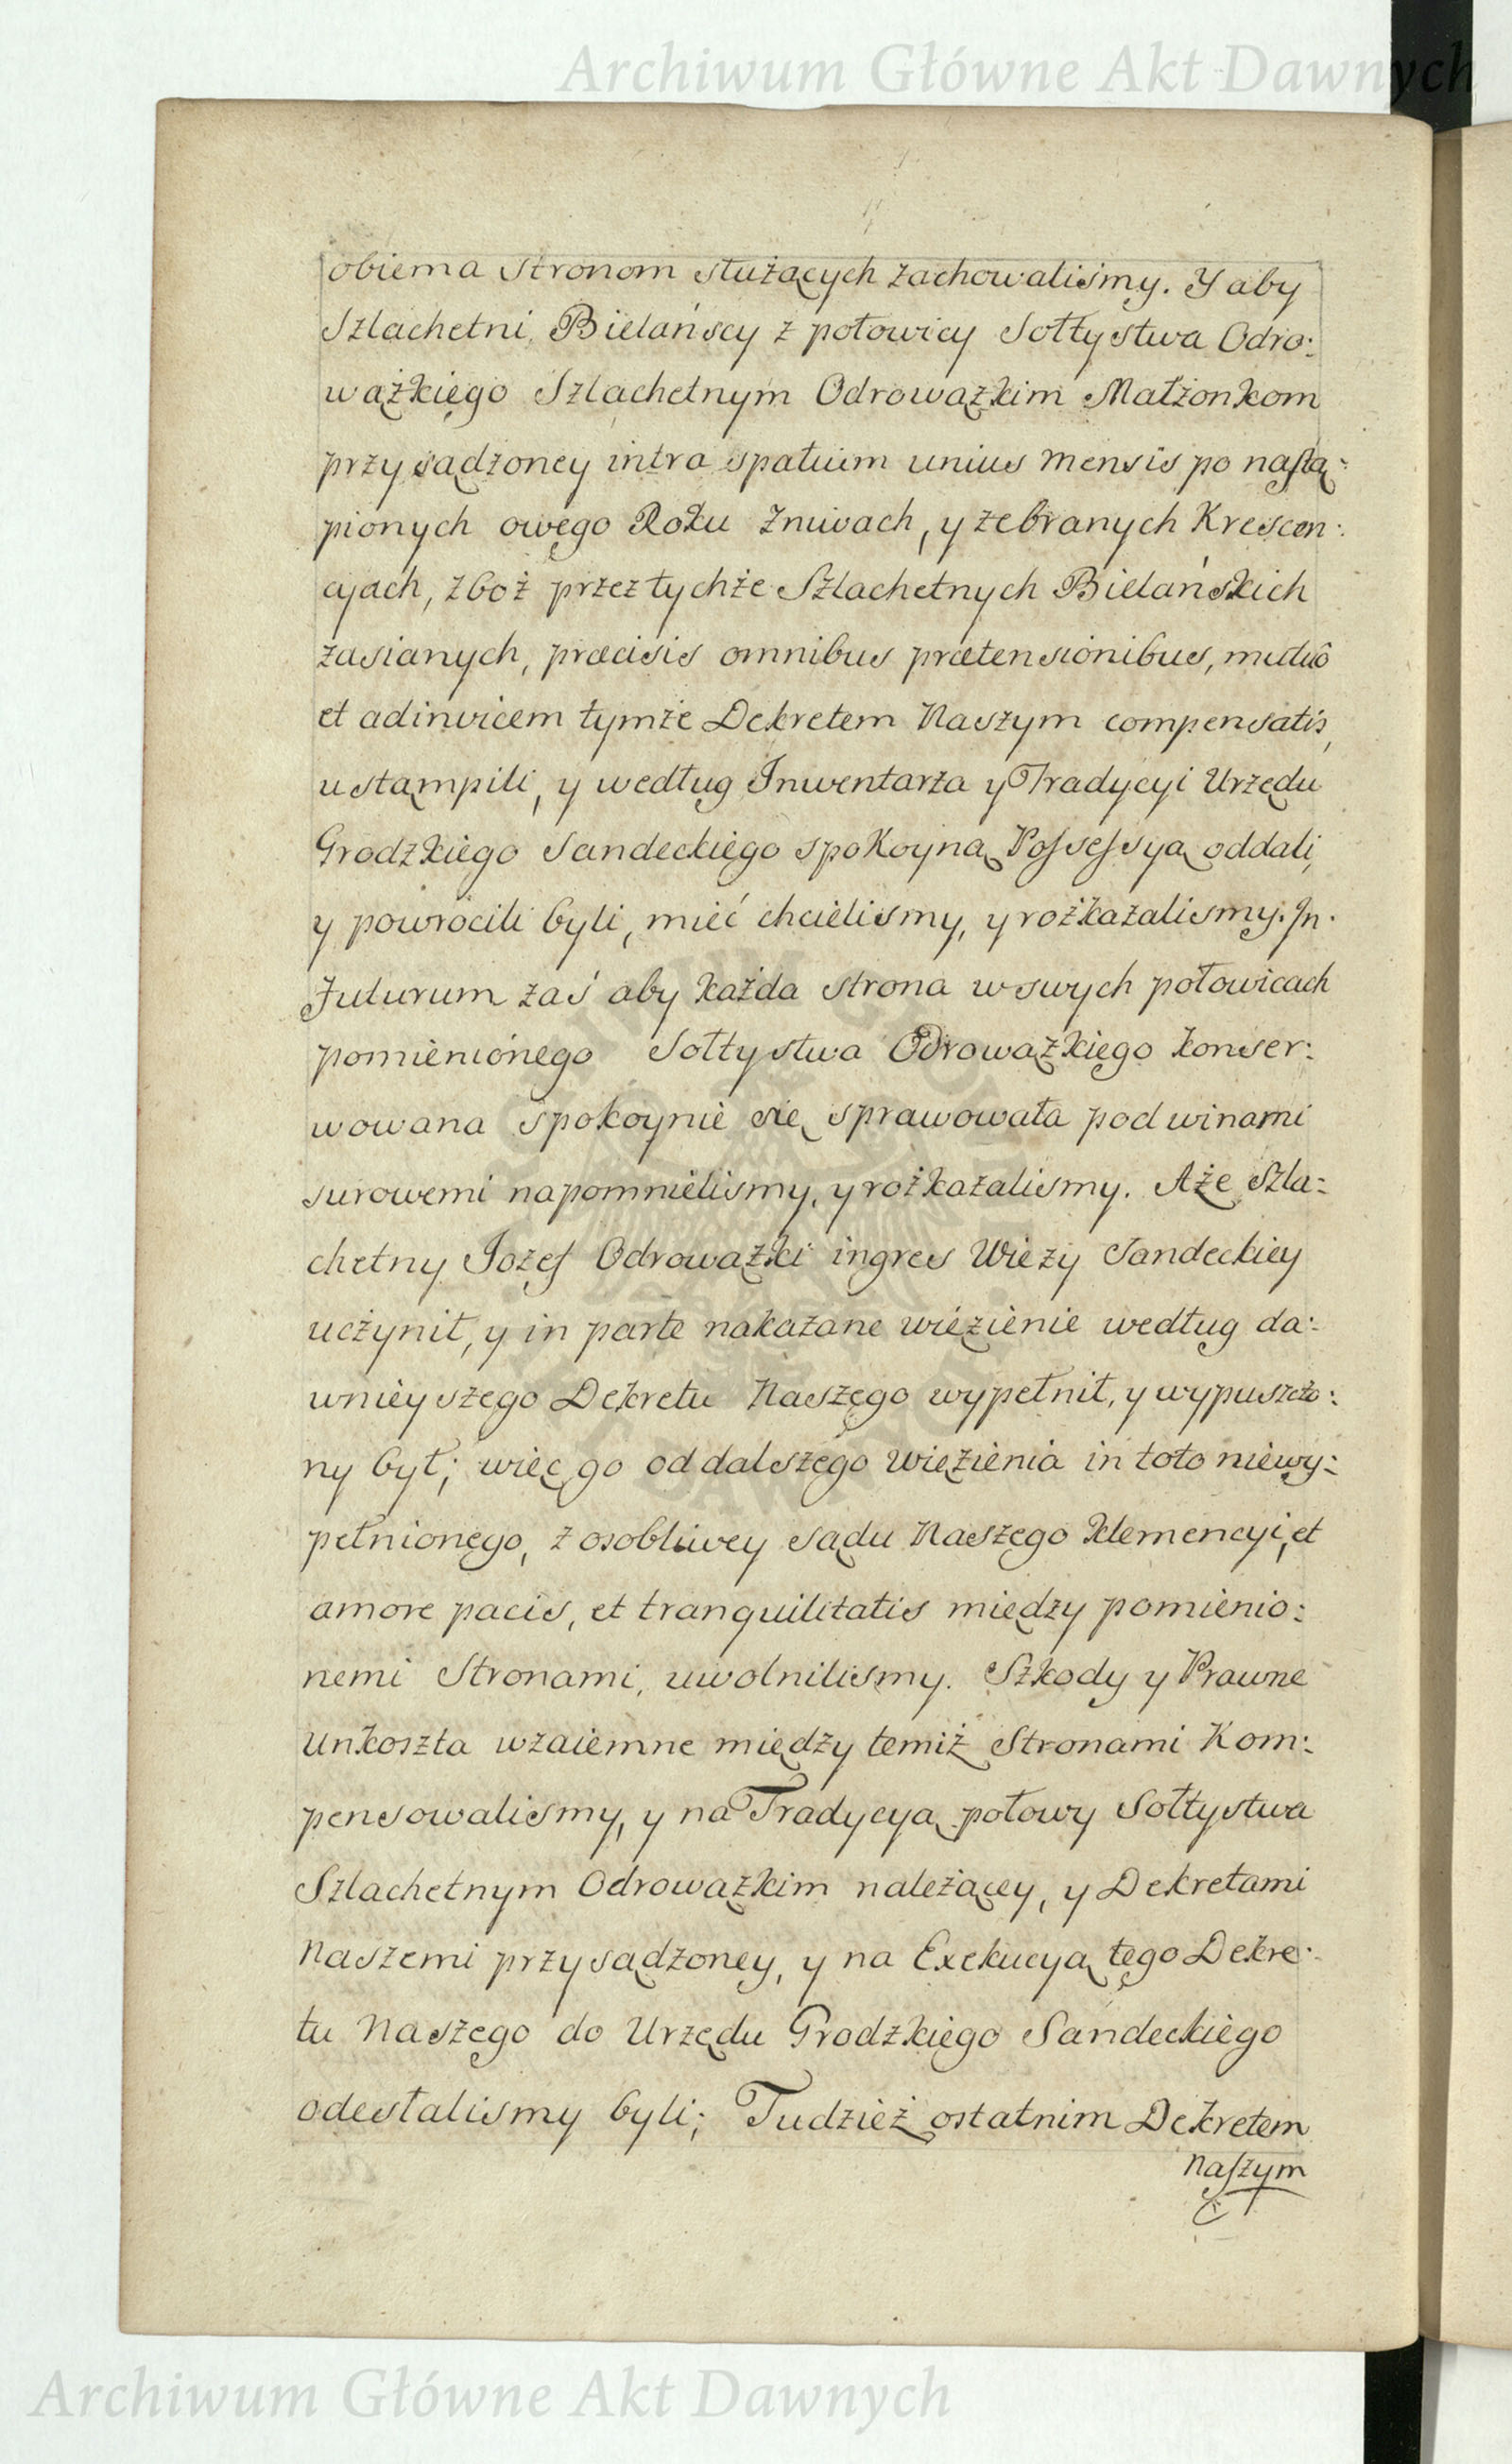 Archiwum Główne Akt Dawnych
obiema stronom służących zachowaliśmy. Y aby
Szlachetni Bielańscy z połowicy Sołtystwa Odro:
wążkięgo Szlachetnym Odrowążkim Małżonkom
przysądzoney intra spatium unius mensis po nastą:
pionych owęgo Roku żniwach, y zebranych Krescen:
cyach, zboż przez tychże Szlachetnych Bielańskich
zasianych, præcisis omnibus prætensionibus, mutuô
et adinvicem tymże Dekretem Naszym compensatis,
ustąmpili, y według Inwentarza y Tradycyi Urzędu
Grodzkiego Sandeckiego spokoyną Possessyą oddali,
y powrócili byli, mieć chcieliśmy, y rozkazaliśmy. In
Futurum zaś aby każda strona w swych połowicach
pomienionego Sołtystwa Odrowążkięgo konser:
wowana spokoynie się sprawowała pod winami
surowemi napomnieliśmy, y rozkazaliśmy. Aże Szla:
chetny Jozef Odrowążki ingres Wieży Sandeckiey
uczynił, y in parte nakazane więzienie według da:
wnieyszego Dekretu Naszęgo wypełnił, y wypuszczo:
ny był; więc go od dalszęgo więzienia in toto niewy:
pełnionęgo, z osobliwey sądu Naszęgo Klemencyi, et
amore pacis, et tranquilitatis między pomienio:
nemi Stronami, uwolniliśmy. Szkody y Prawne
Unkoszta wzaiemne między temiż Stronami Kom:
pensowaliśmy, y na Tradycyą połowy Sołtystwa
Szlachetnym Odrowążkim należącey, y Dekretami
Naszemi przysądzoney, y na Exekucyą tęgo Dekre:
tu Naszęgo do Urzędu Grodzkięgo Sandeckiego
odesłaliśmy byli; Tudzież ostatnim Dekretem
Naszym
Archiwum Główne Akt Dawnych